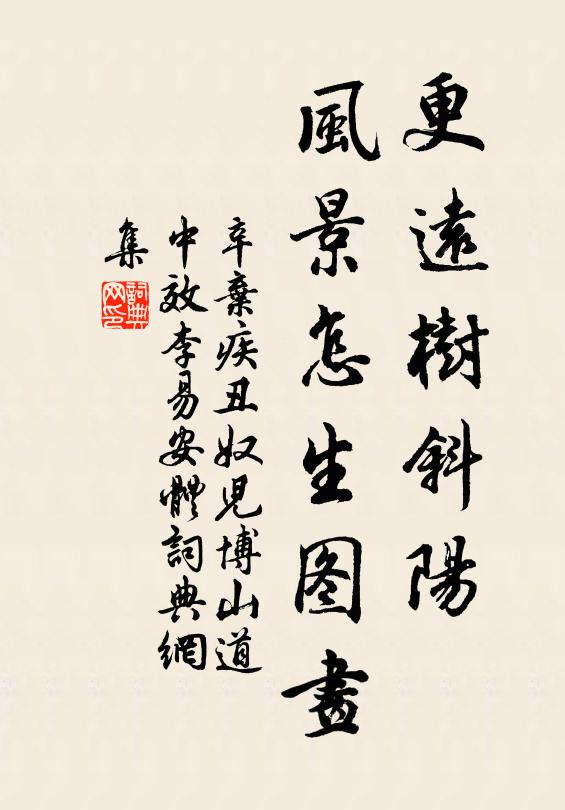 更遠樹斜陽
風景怎生图畫
辛棄疾丑奴兒博山道
中效李易安體詞典網
集
詞典
网印